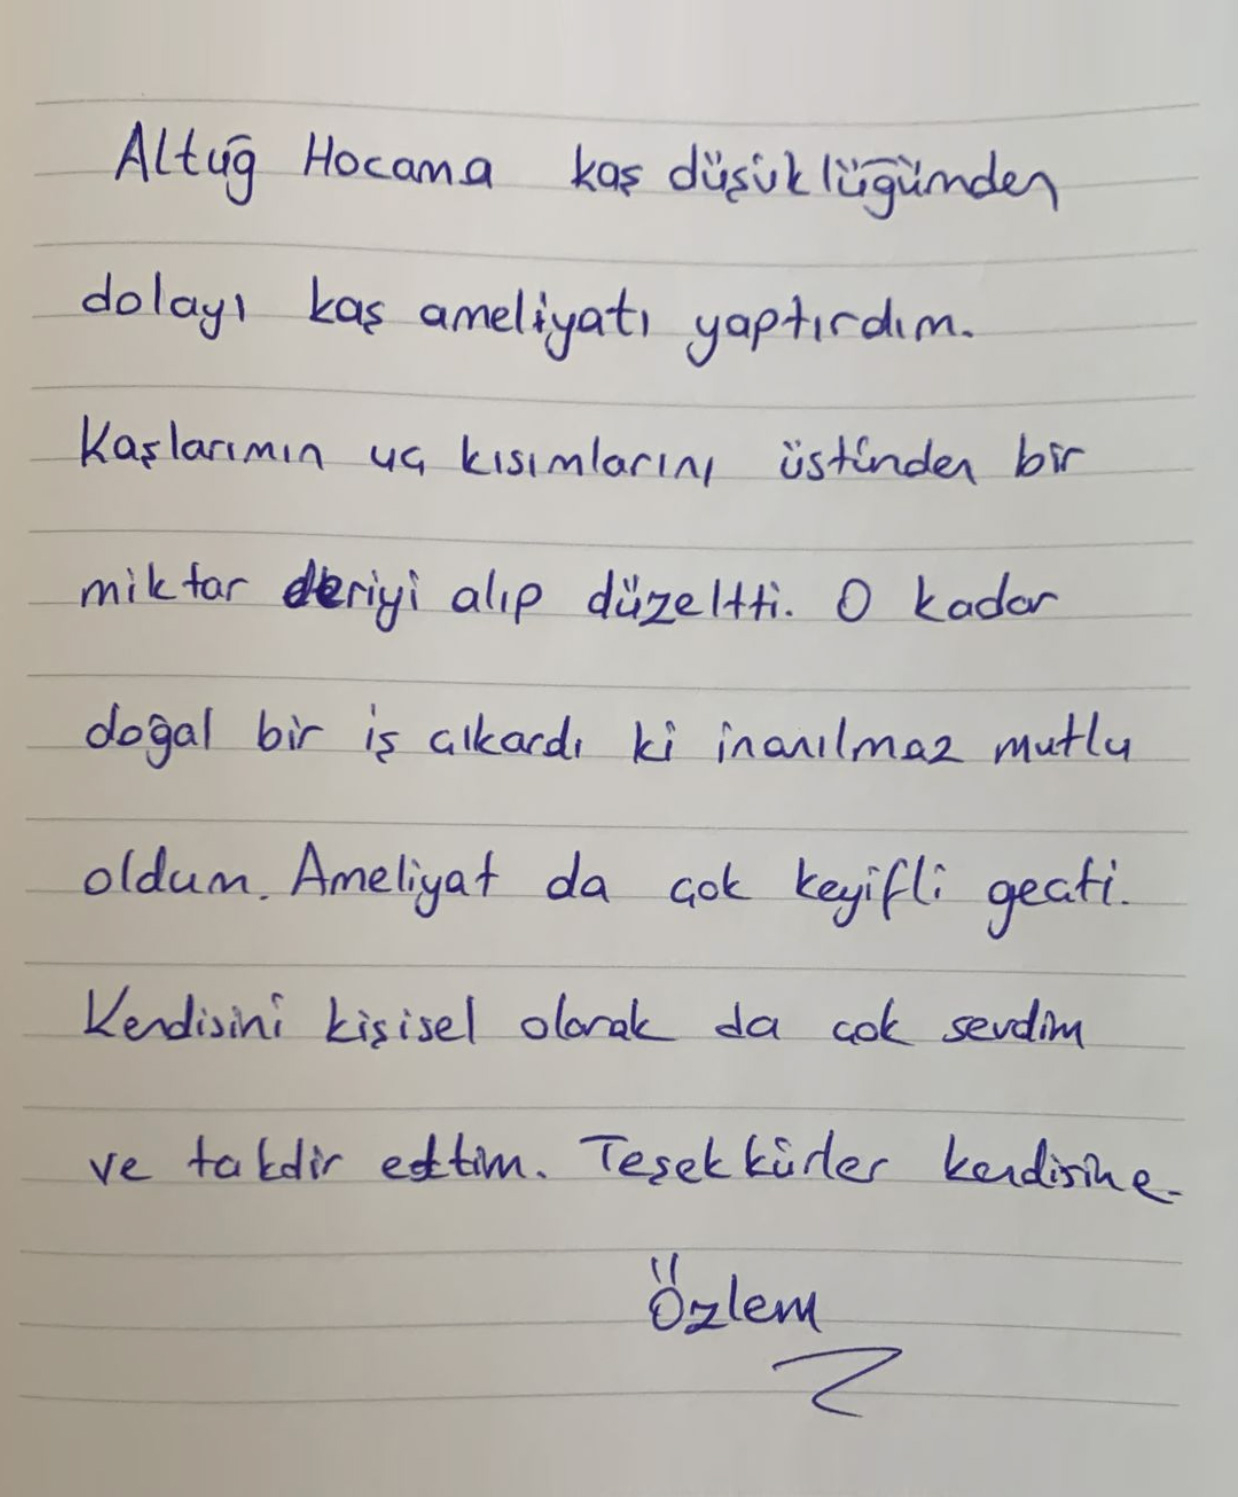 Altuğ Hocama kaş düşüklüğümden
dolayı kaş ameliyatı yaptırdım.
Kaşlarımın uç kısımlarını üstünden bir
miktar deriyi alıp düzeltti. O kadar
doğal bir iş çıkardı ki inanılmaz mutlu
oldum. Ameliyat da çok keyifli geçti.
Kendisini kişisel olarak da çok sevdim
ve takdir ettim. Teşekkürler kendisine.
Özlem